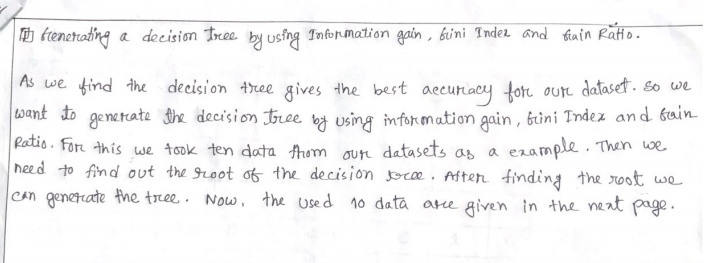 Generating a decision tree by using Information gain, Gini Index and Gain Ratio.
As we find the decision tree gives the best accuracy for our dataset. So we
want to generate the decision tree by using information gain, Gini Index and Gain
Ratio. For this we took ten data from our datasets as a example. Then we
need to find out the root of the decision tree. After finding the root we
can generate the tree. Now, the used 10 data are given in the next page.